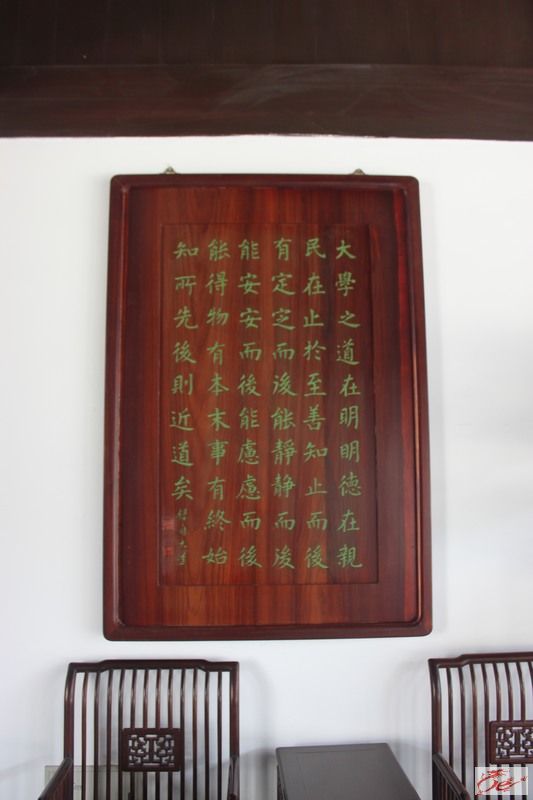 大學之道在明明德在親
民在止於至善知止而後
有定定而後能静静而後
能安安而後能慮慮而後
能得物有本末事有終始
知所先後則近道矣